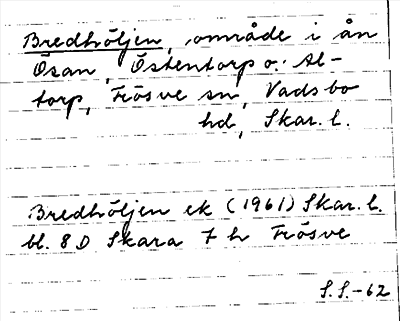 Bredhöljen, område i ån
Ösan, Östentorp o. Al-
torp, Frösve sn, Vadsbo
hd, Skar. l.
Bredhöljen ek (1961) Skar. l.
bl. 8D Skara 7 h Frösve
S.S.-62